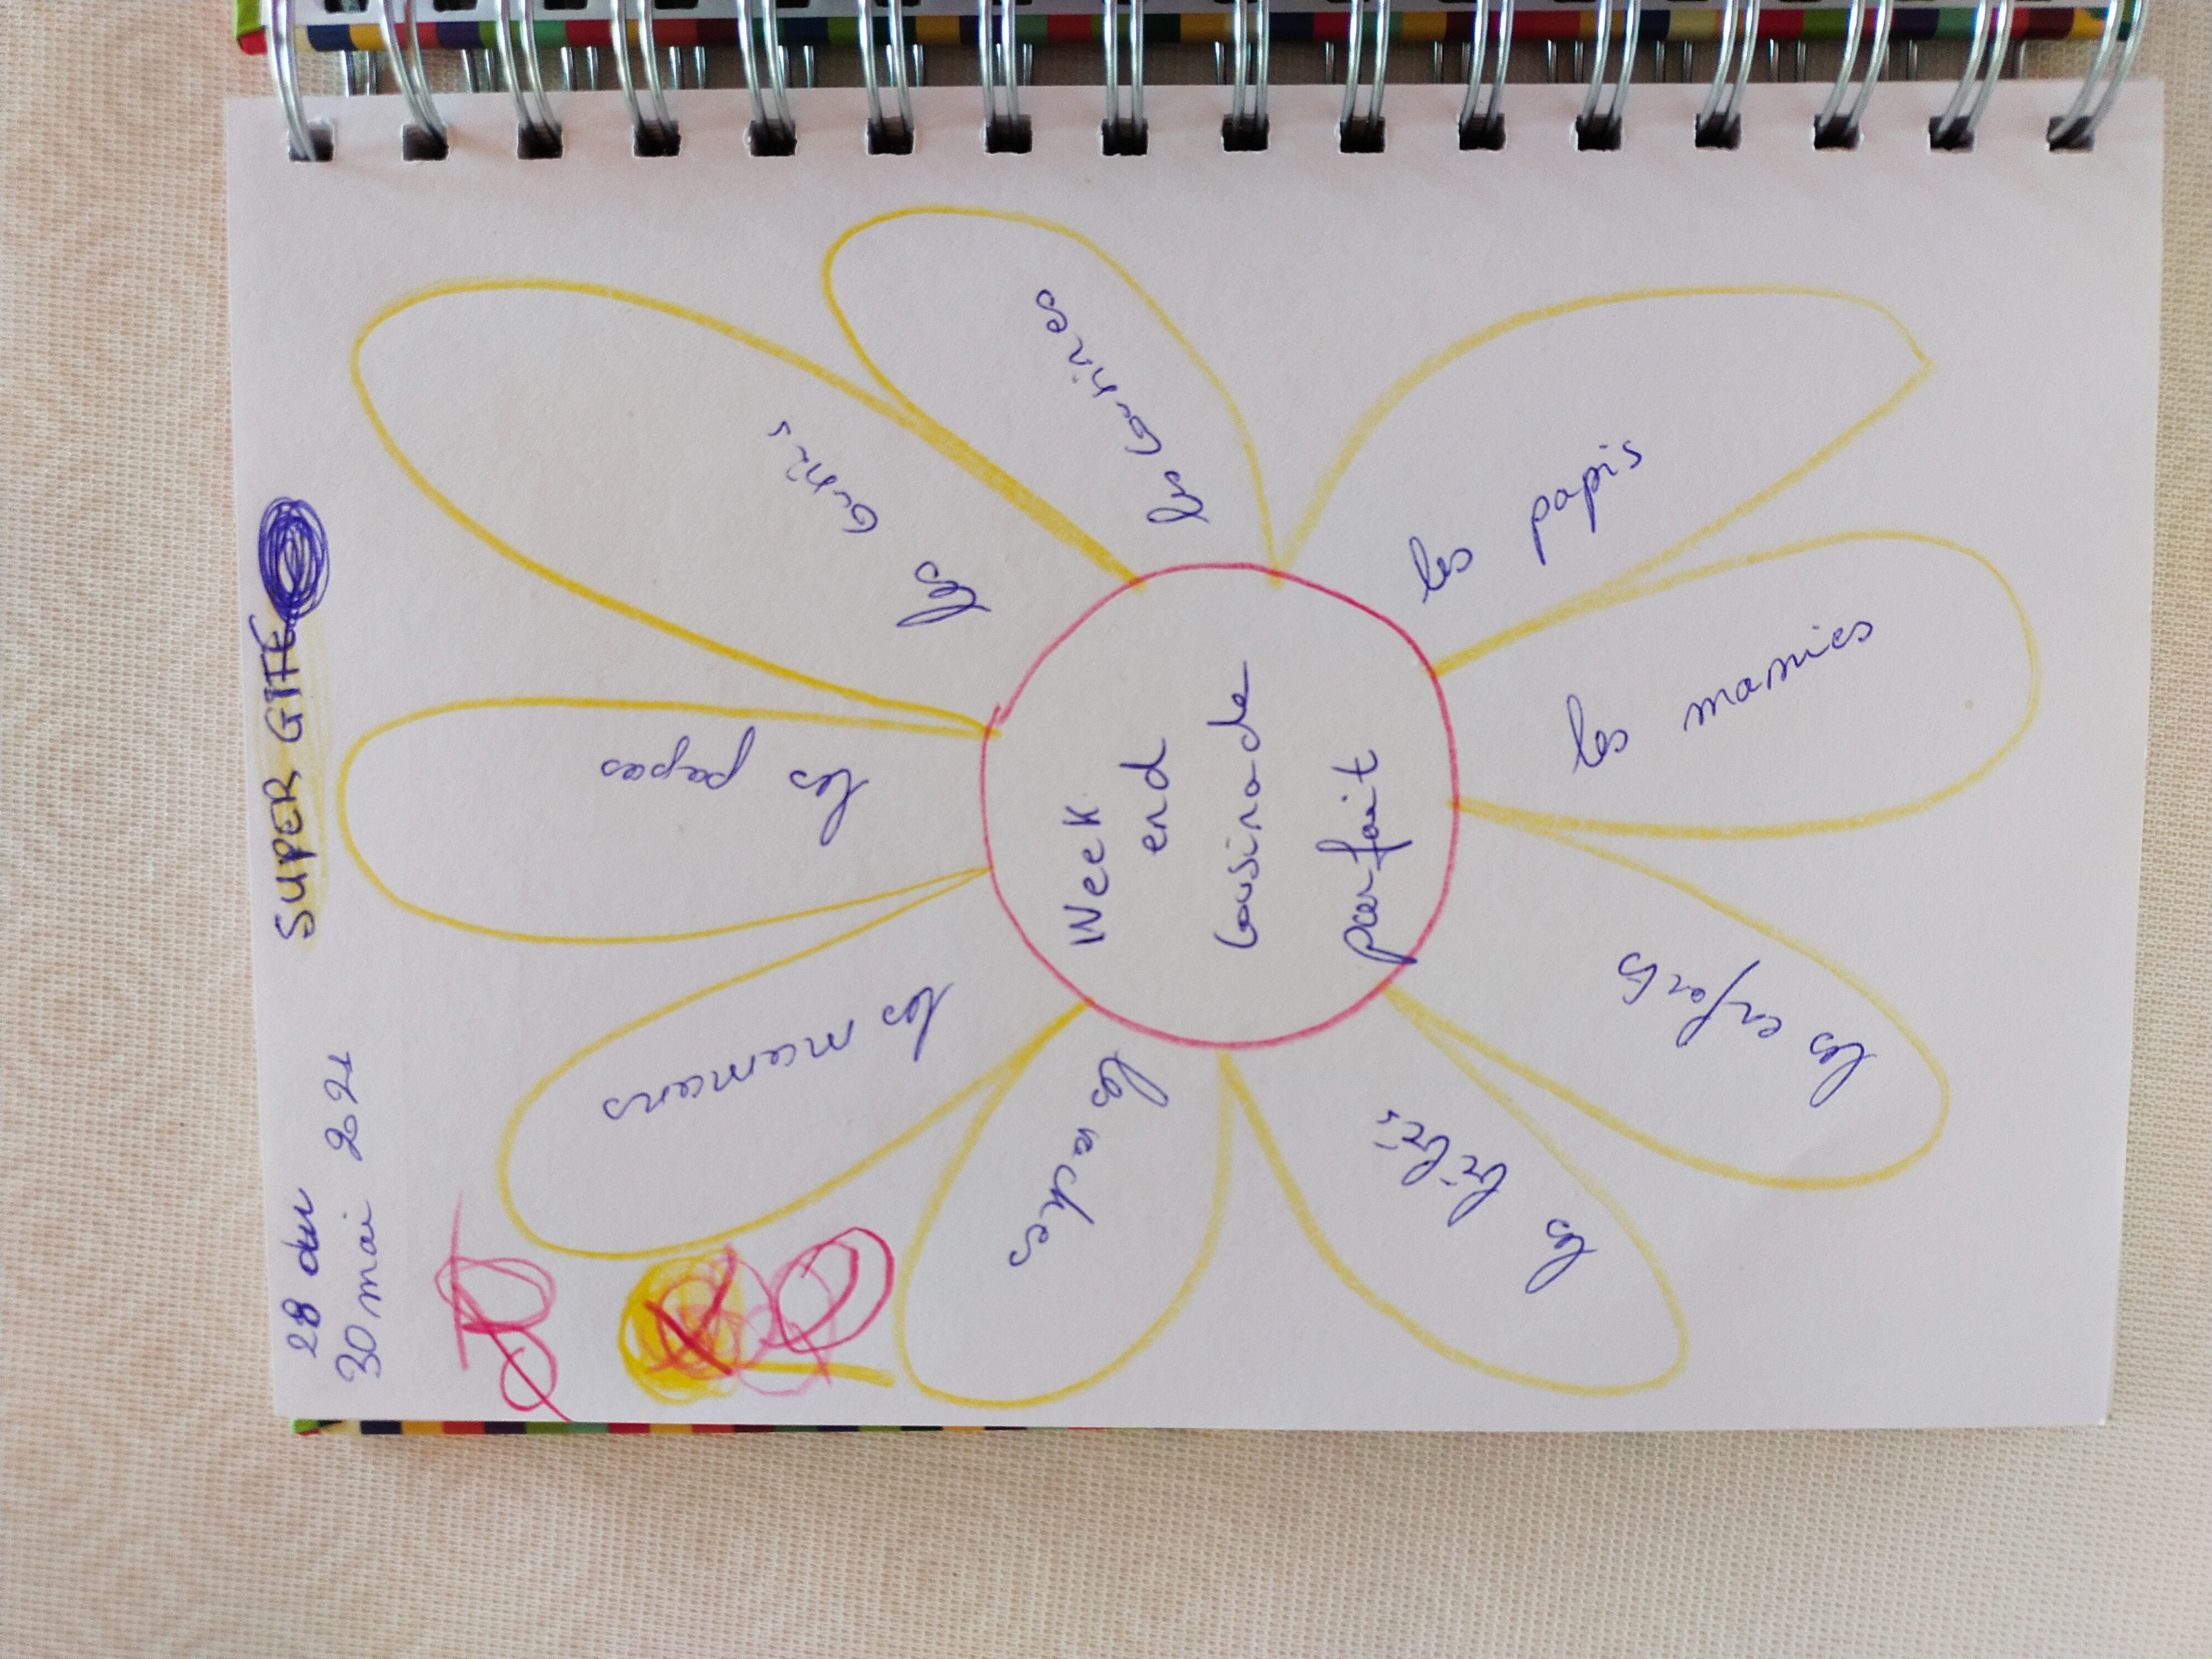 28 au
30 mai 2021
SUPER GITE
Week
end
Cousinade
parfait
les papas
les cousins
les cousines
les papis
les mamies
les enfants
les
les vaches
les mamans